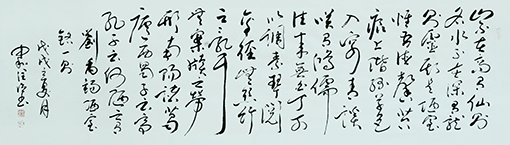 山不在高有仙则
名水不在深有龙
则灵斯是陋室
惟吾德馨苔
痕上阶绿草色
入帘青谈
笑有鸿儒
往来无白丁可
以调素琴阅
金经无丝竹
之乱耳
无案牍之劳
形南阳诸葛
庐西蜀子云亭
孔子云何陋之有
刘禹锡陋室
铭一则
戊戌之夏月